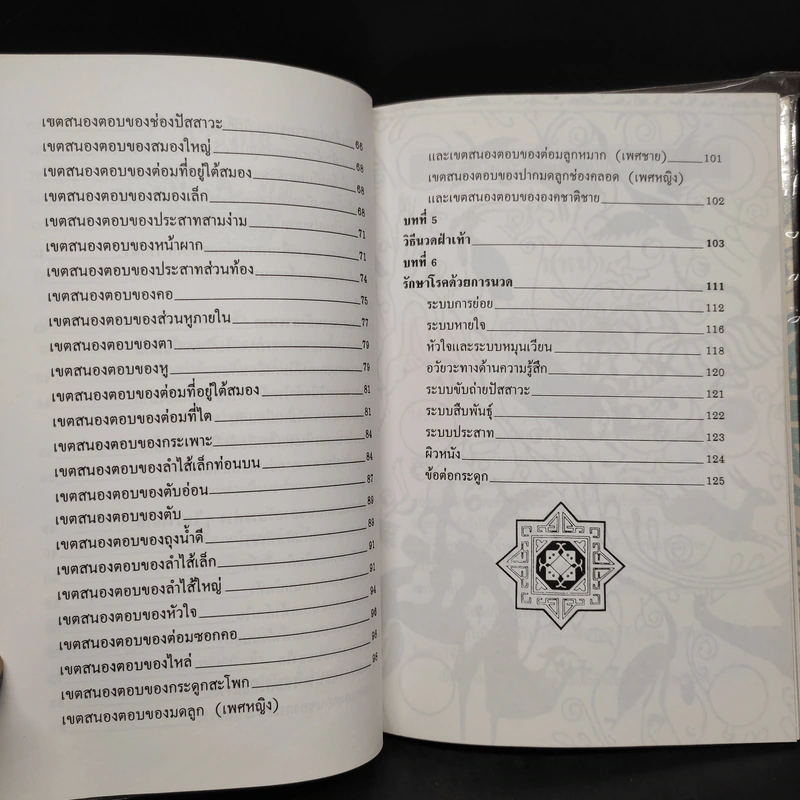 เขตสนองตอบของช่องปัสสาวะ 66
เขตสนองตอบของสมองใหญ่ 68
เขตสนองตอบของต่อมที่อยู่ใต้สมอง 68
เขตสนองตอบของสมองเล็ก 68
เขตสนองตอบของประสาทสามง่าม 71
เขตสนองตอบของหน้าผาก 71
เขตสนองตอบของประสาทส่วนท้อง 74
เขตสนองตอบของคอ 75
เขตสนองตอบของส่วนหูภายใน 77
เขตสนองตอบของตา 79
เขตสนองตอบของหู 79
เขตสนองตอบของต่อมที่อยู่ใต้สมอง 81
เขตสนองตอบของต่อมที่ไต 81
เขตสนองตอบของกระเพาะ 84
เขตสนองตอบของลำไส้เล็กท่อนบน 84
เขตสนองตอบของตับอ่อน 87
เขตสนองตอบของตับ 89
เขตสนองตอบของถุงน้ำดี 89
เขตสนองตอบของลำไส้เล็ก 91
เขตสนองตอบของลำไส้ใหญ่ 91
เขตสนองตอบของหัวใจ 94
เขตสนองตอบของต่อมซอกคอ 96
เขตสนองตอบของไหล่ 98
เขตสนองตอบของกระดูกสะโพก 98
เขตสนองตอบของมดลูก (เพศหญิง)
และเขตสนองตอบของต่อมลูกหมาก (เพศชาย) 101
เขตสนองตอบของปากมดลูกช่องคลอด (เพศหญิง)
และเขตสนองตอบขององคชาติชาย 102
บทที่ 5
วิธีนวดฝ่าเท้า 103
บทที่ 6
รักษาโรคด้วยการนวด 111
ระบบการย่อย 112
ระบบหายใจ 116
หัวใจและระบบหมุนเวียน 118
อวัยวะทางด้านความรู้สึก 120
ระบบขับถ่ายปัสสาวะ 121
ระบบสืบพันธุ์ 122
ระบบประสาท 123
ผิวหนัง 124
ข้อต่อกระดูก 125